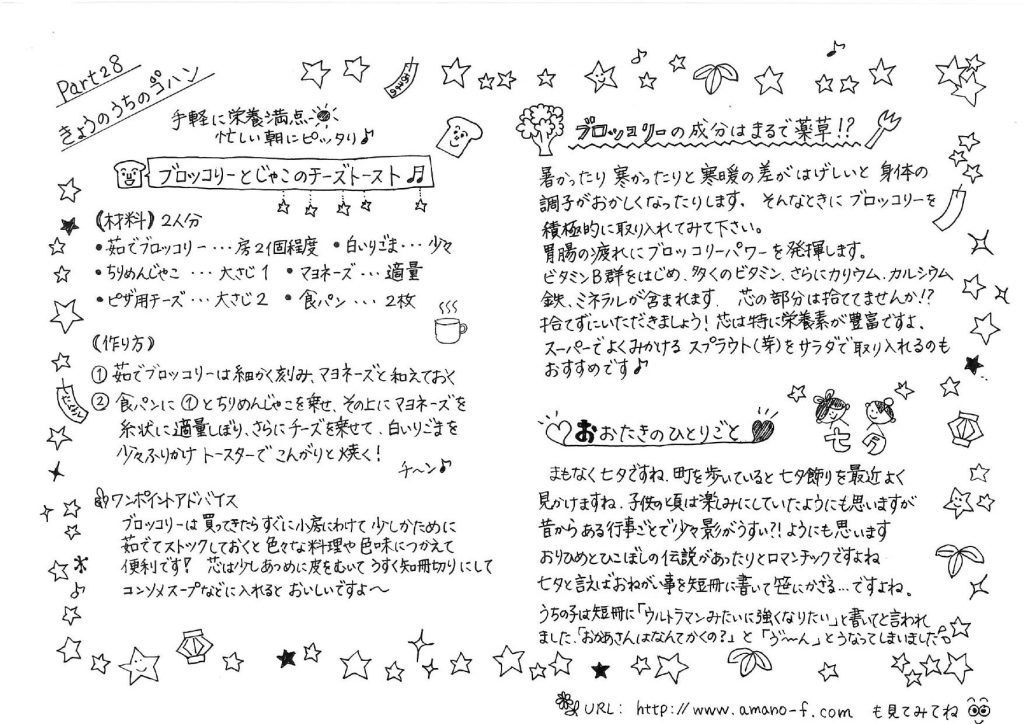 Part28
きょうのうちのゴハン
手軽に栄養満点
忙しい朝にピッタリ♪
ブロッコリーとじゃこのチーズトースト♫
《材料》2人分
•茹でブロッコリー…房2個程度 •白いりごま…少々
•ちりめんじゃこ…大さじ1 •マヨネーズ…適量
•ピザ用チーズ…大さじ2 •食パン…2枚
《作り方》
① 茹でブロッコリーは細かく刻み、マヨネーズと和えておく
② 食パンに①とちりめんじゃこを乗せ、その上にマヨネーズを
糸状に適量しぼり、さらにチーズを乗せて、白いりごまを
少々ふりかけ トースターで こんがりと焼く!
チ〜ン♪
ワンポイントアドバイス
ブロッコリーは買ってきたらすぐに小房にわけて 少しかために
茹でてストックしておくと色々な料理や色味につかえて
便利です! 芯は少しあつめに皮をむいて うすく短冊切りにして
コンソメスープなどに入れると おいしいですよ〜
ブロッコリーの成分はまるで薬草!?
暑かったり 寒かったりと 寒暖の差が はげしいと 身体の
調子がおかしくなったりします、そんなときに ブロッコリーを
積極的に取り入れてみて下さい。
胃腸の疲れにブロッコリーパワーを発揮します。
ビタミンB群をはじめ、多くのビタミン、さらにカリウム、カルシウム
鉄、ミネラルが含まれます、芯の部分は捨ててませんか!?
捨てずにいただきましょう!芯は特に栄養素が豊富ですよ、
スーパーでよくみかける スプラウト(芽)をサラダで取り入れるのも
おすすめです♪
七夕
おおたきのひとりごと
まもなく七夕ですね、町を歩いていると七夕飾りを最近よく
見かけますね、子供の頃は楽しみにしていたようにも思いますが
昔からある行事ごとで少々影がうすい?!ようにも思います
おりひめとひこぼしの伝説があったりとロマンチックですよね
七夕と言えばおねがい事を短冊に書いて笹にかざる…ですよね。
うちの子は短冊に「ウルトラマンみたいに強くなりたい」と書いてと言われ
ました、「おかあさんはなんてかくの?」と「ゔ〜ん」とうなってしまいました。
URL: http://www.amano-f.com も見てみてね